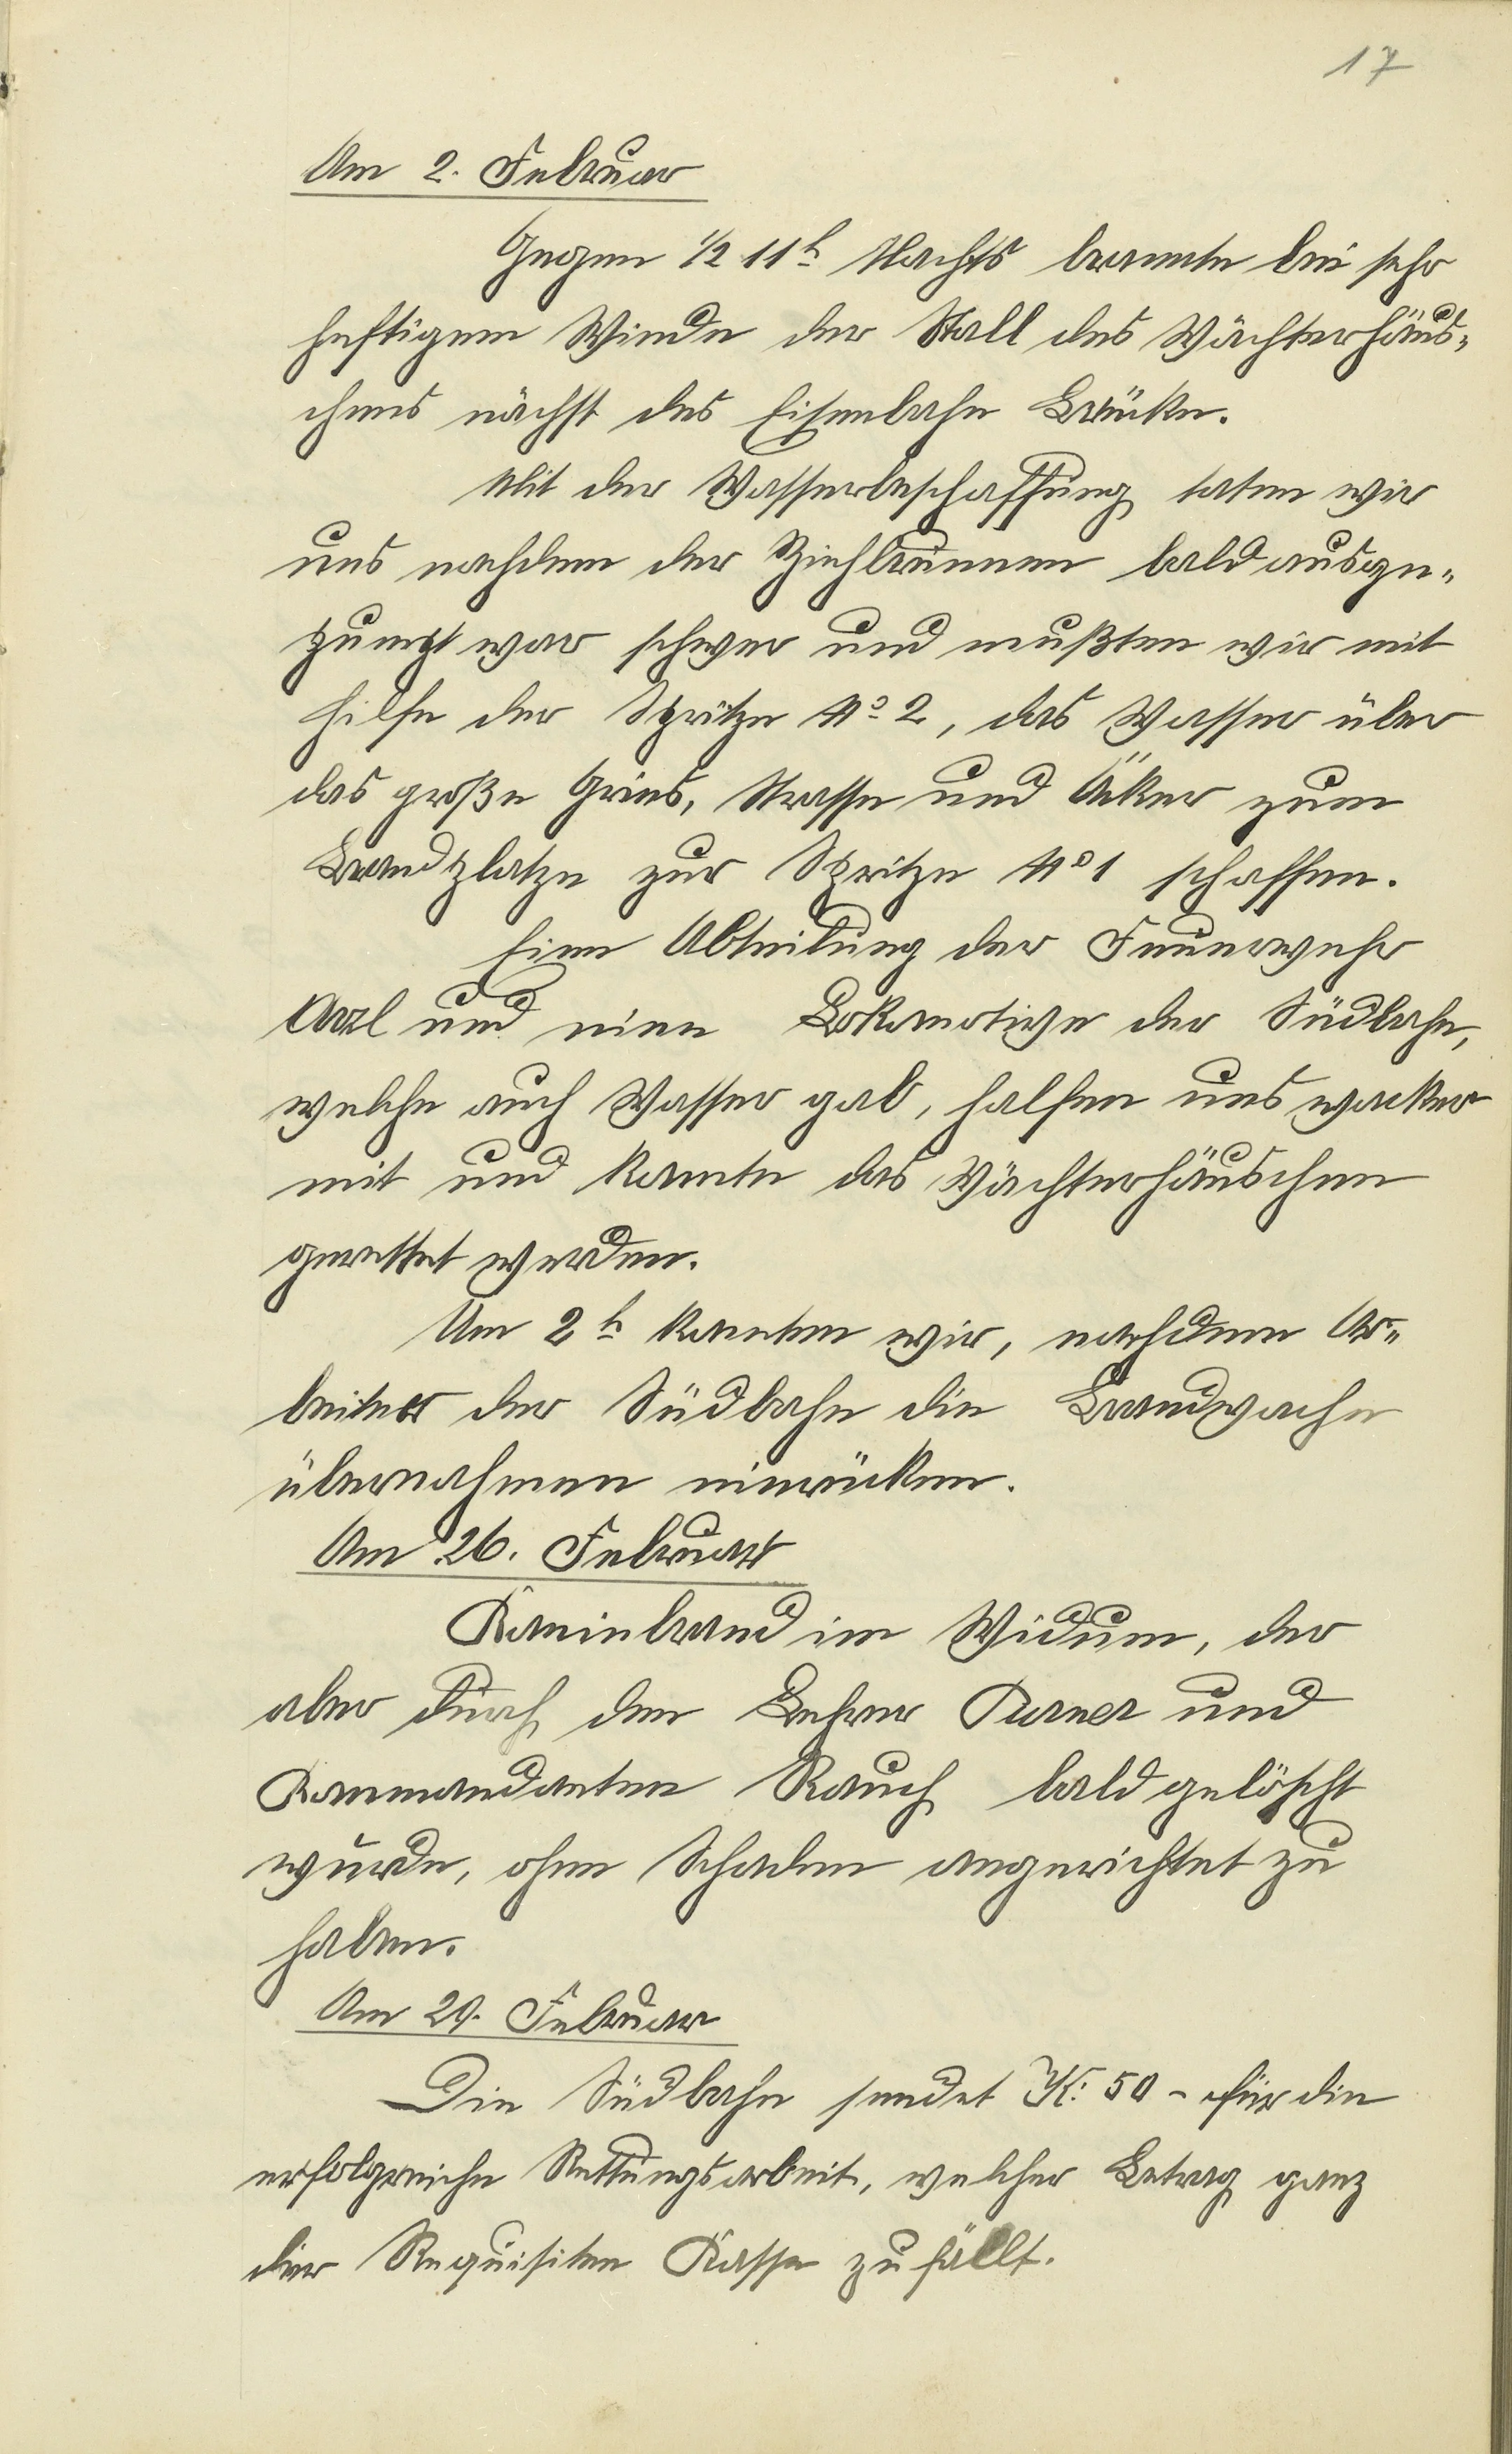 17
Am 2. Februar
Gegen 1/2 11h Nachts brannte bei sehr
heftigem Winde der Stall des Wächterhäus-
chens nächst des Eisenbahn Brücke.
Mit der Wasserbeschaffung taten wir
uns nachdem der Ziehbrunnen bald ausge-
pumpt war schwer und mußten wir mit
Hilfe der Spritze No 2, das Wasser über
das große Gries, Strasse und Äcker zum
Brandplatze zur Spritze No 1 schaffen.
Eine Abteilung der Feuerwehr
Arzl und eine Lokomotive der Südbahn,
welche auch Wasser gab, halfen uns wacker
mit und konnte das Wächterhäuschen
gerettet werden.
Um 2h konnten wir, nachdem Ar-
beiter der Südbahn die Brandwache
übernahmen einrücken.
Am 26. Februar
Kaminbrand im Widum, der
aber durch den Lehrer Purner und
Kommandanten Rauch bald gelöscht
wurde, ohne Schaden angerichtet zu
haben.
Am 29. Februar
Die Südbahn sendet K: 50 - für die
erfolgreiche Rettungsarbeit, welcher Betrag ganz
der Requisiten Kasse zufällt.